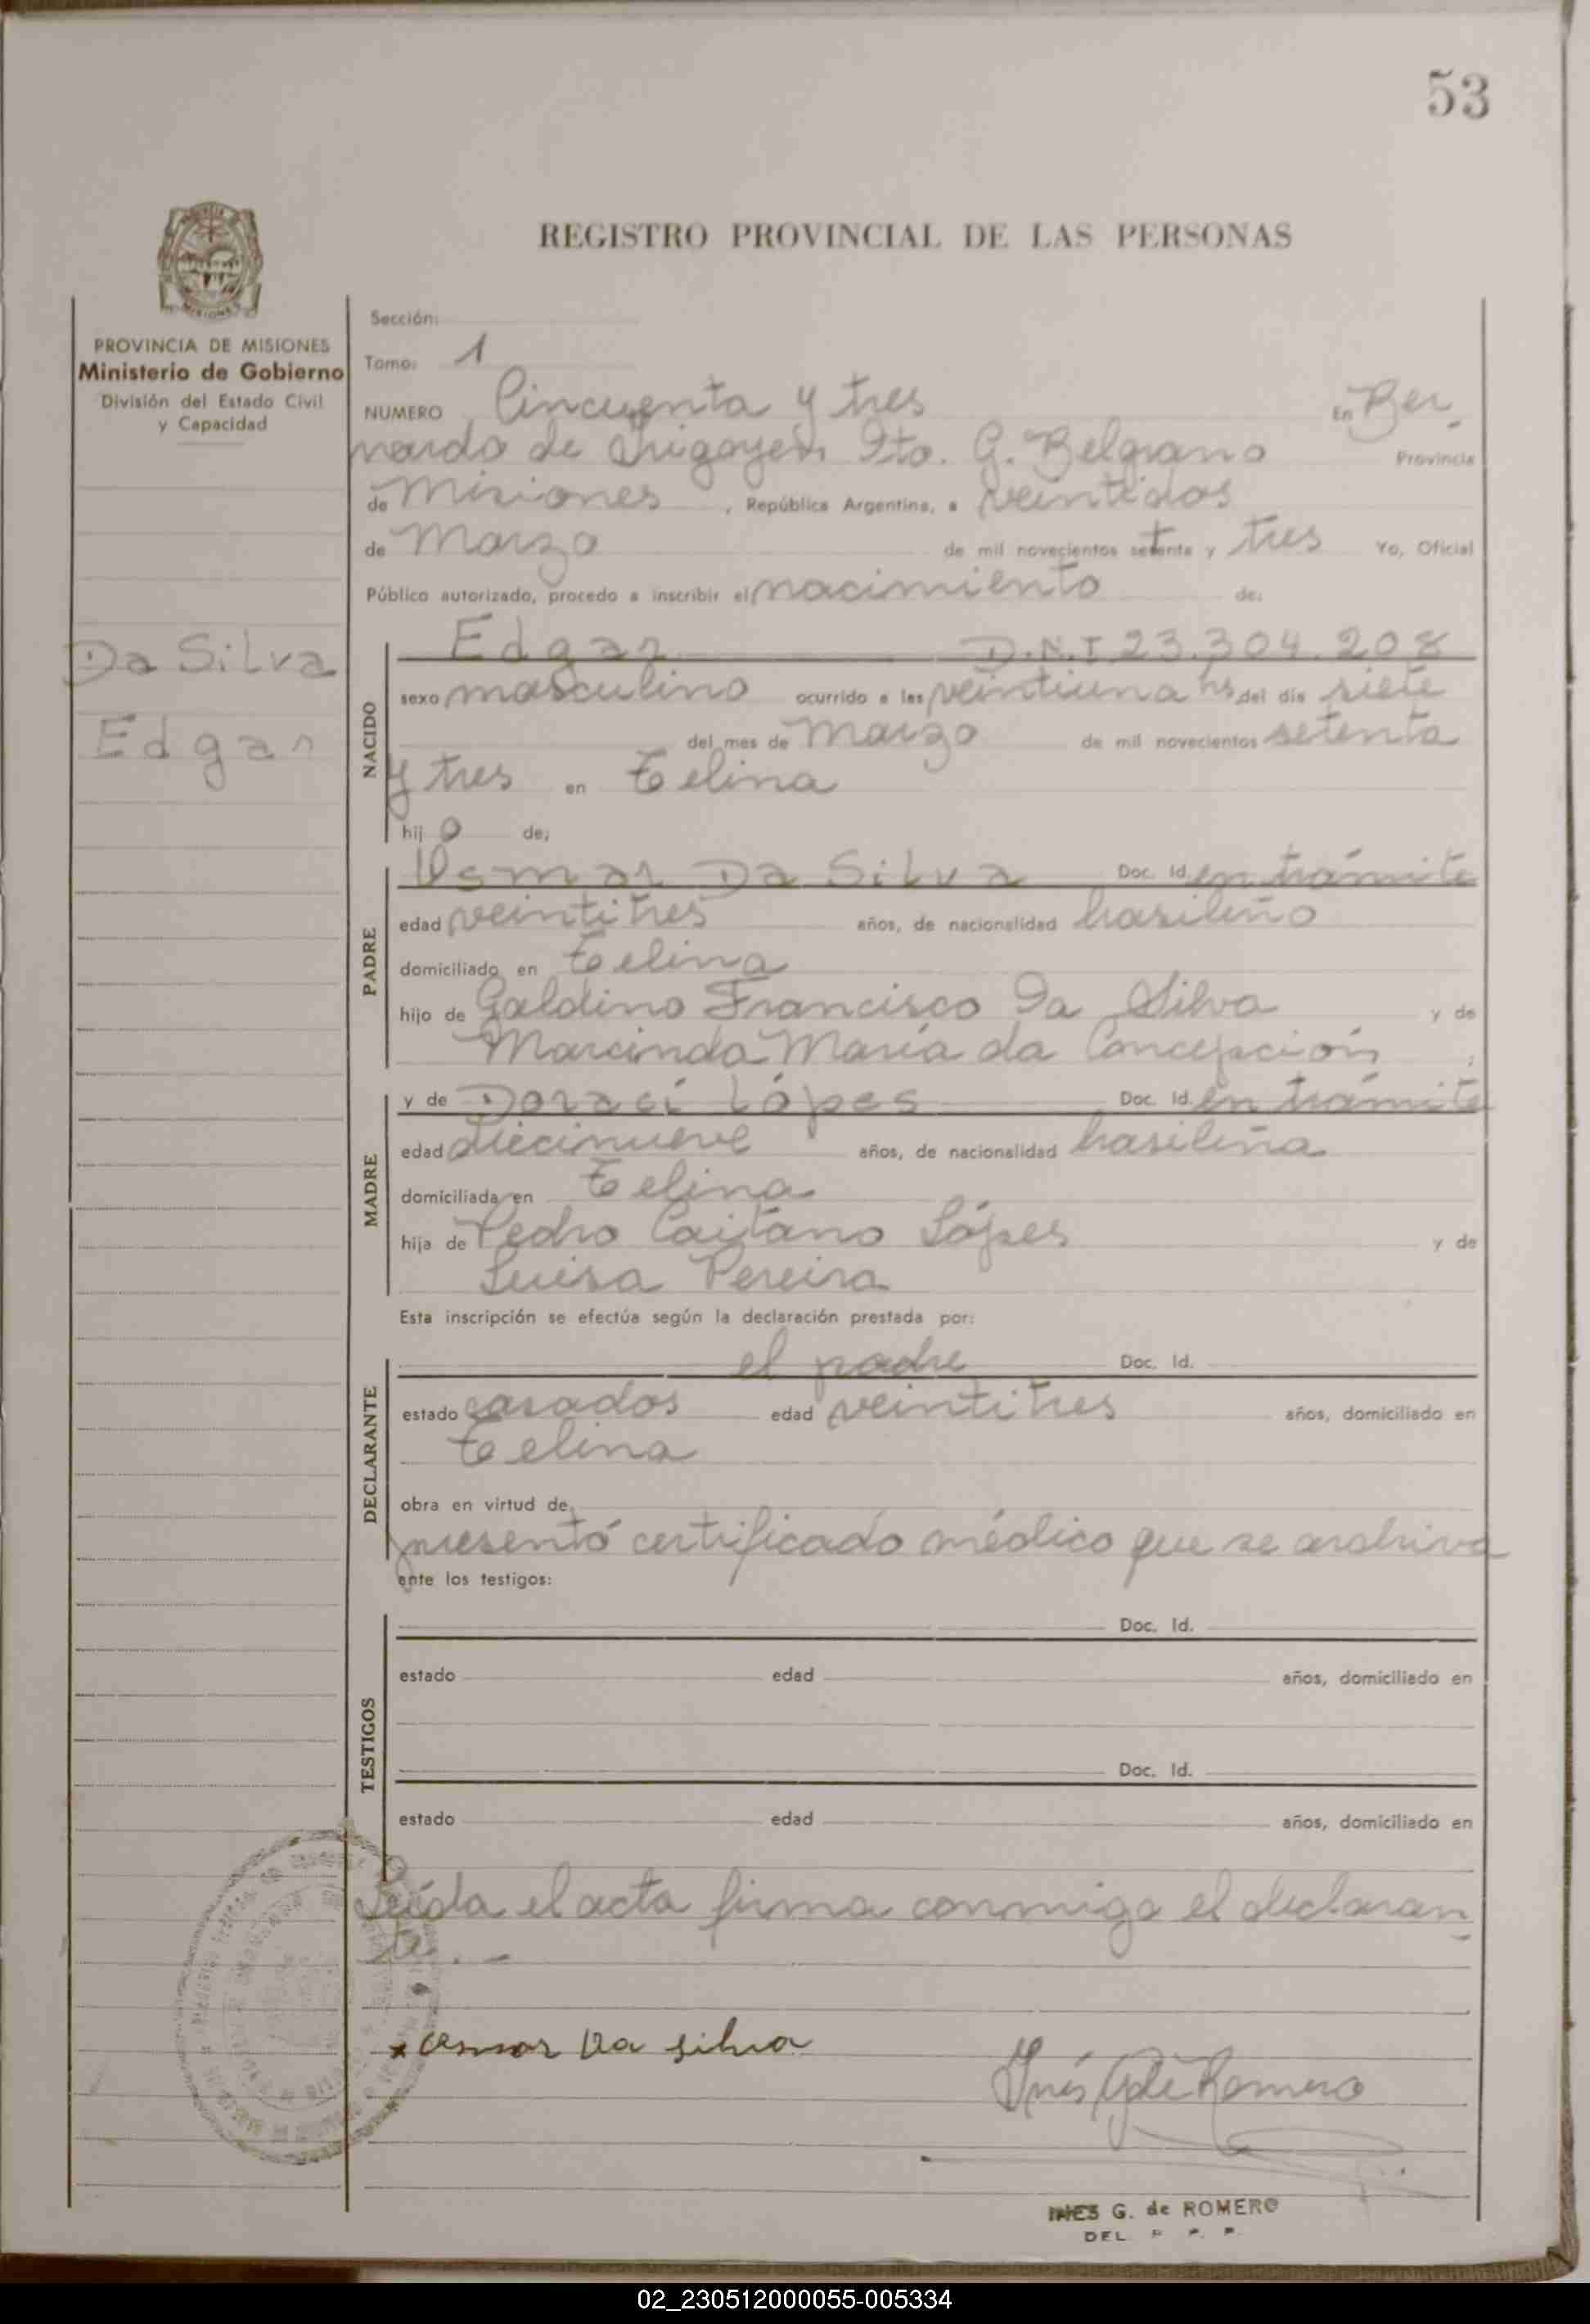 53
REGISTRO PROVINCIAL DE LAS PERSONAS
PROVINCIA DE MISIONES
Ministerio de Gobierno
División del Estado Civil
y Capacidad
Da Silva
Edgar
Sección:
Tomo: 1
NUMERO Cincuenta y tres En Ber-
nardo de Irigoyen Dto. G. Belgrano Provincia
de Misiones, República Argentina, a veintidos
de Marzo de mil novecientos setenta y tres Yo, Oficial
Público autorizado, procedo a inscribir el nacimiento de:
NACIDO
Edgar D.N.I 23.304.208
sexo masculino ocurrido a las veintiuna hs del día siete
del mes de Marzo de mil novecientos setenta
y tres en Celina
hij o de;
PADRE
Osmar Da Silva Doc. Id. en trámite
edad veintitres años, de nacionalidad brasileño
domiciliado en Celina
hijo de Galdino Francisco Da Silva y de
Marcinda María da Concepción ;
MADRE
y de Doraci Lópes Doc. Id. en trámite
edad diecinueve años, de nacionalidad brasileña
domiciliada en Celina
hija de Pedro Caitano Lópes y de
Luisa Pereira
Esta inscripción se efectúa según la declaración prestada por:
DECLARANTE
el padre Doc. Id.
estado casados edad veintitres años, domiciliado en
Celina
obra en virtud de
presentó certificado médico que se archiva
ante los testigos:
TESTIGOS
Doc. Id.
estado edad años, domiciliado en
Doc. Id.
estado edad años, domiciliado en
Leída el acta firma conmigo el declaran-
te. -
x Osmar Da silva
Inés G de Romero
INES G. de ROMERO
DEL. R. P. P.
02_230512000055-005334